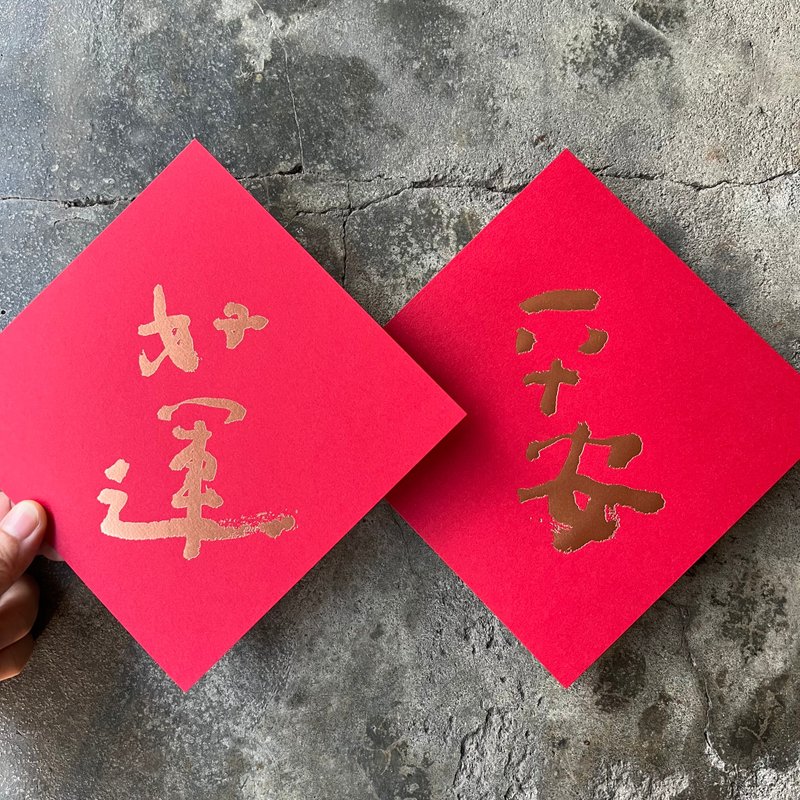 好運
平安